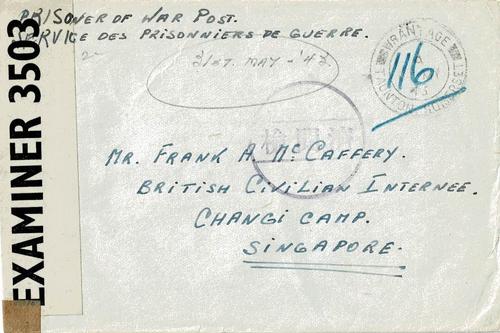 PRISONER OF WAR POST.
SERVICE DES PRISONNIERS DE GUERRE.
31ST. MAY - '43.
WRANTAGE
TAUNTON. SOMERSET
43
116
MR. FRANK A. McCAFFERY.
BRITISH CIVILIAN INTERNEE.
CHANGI CAMP.
SINGAPORE.
EXAMINER 3503